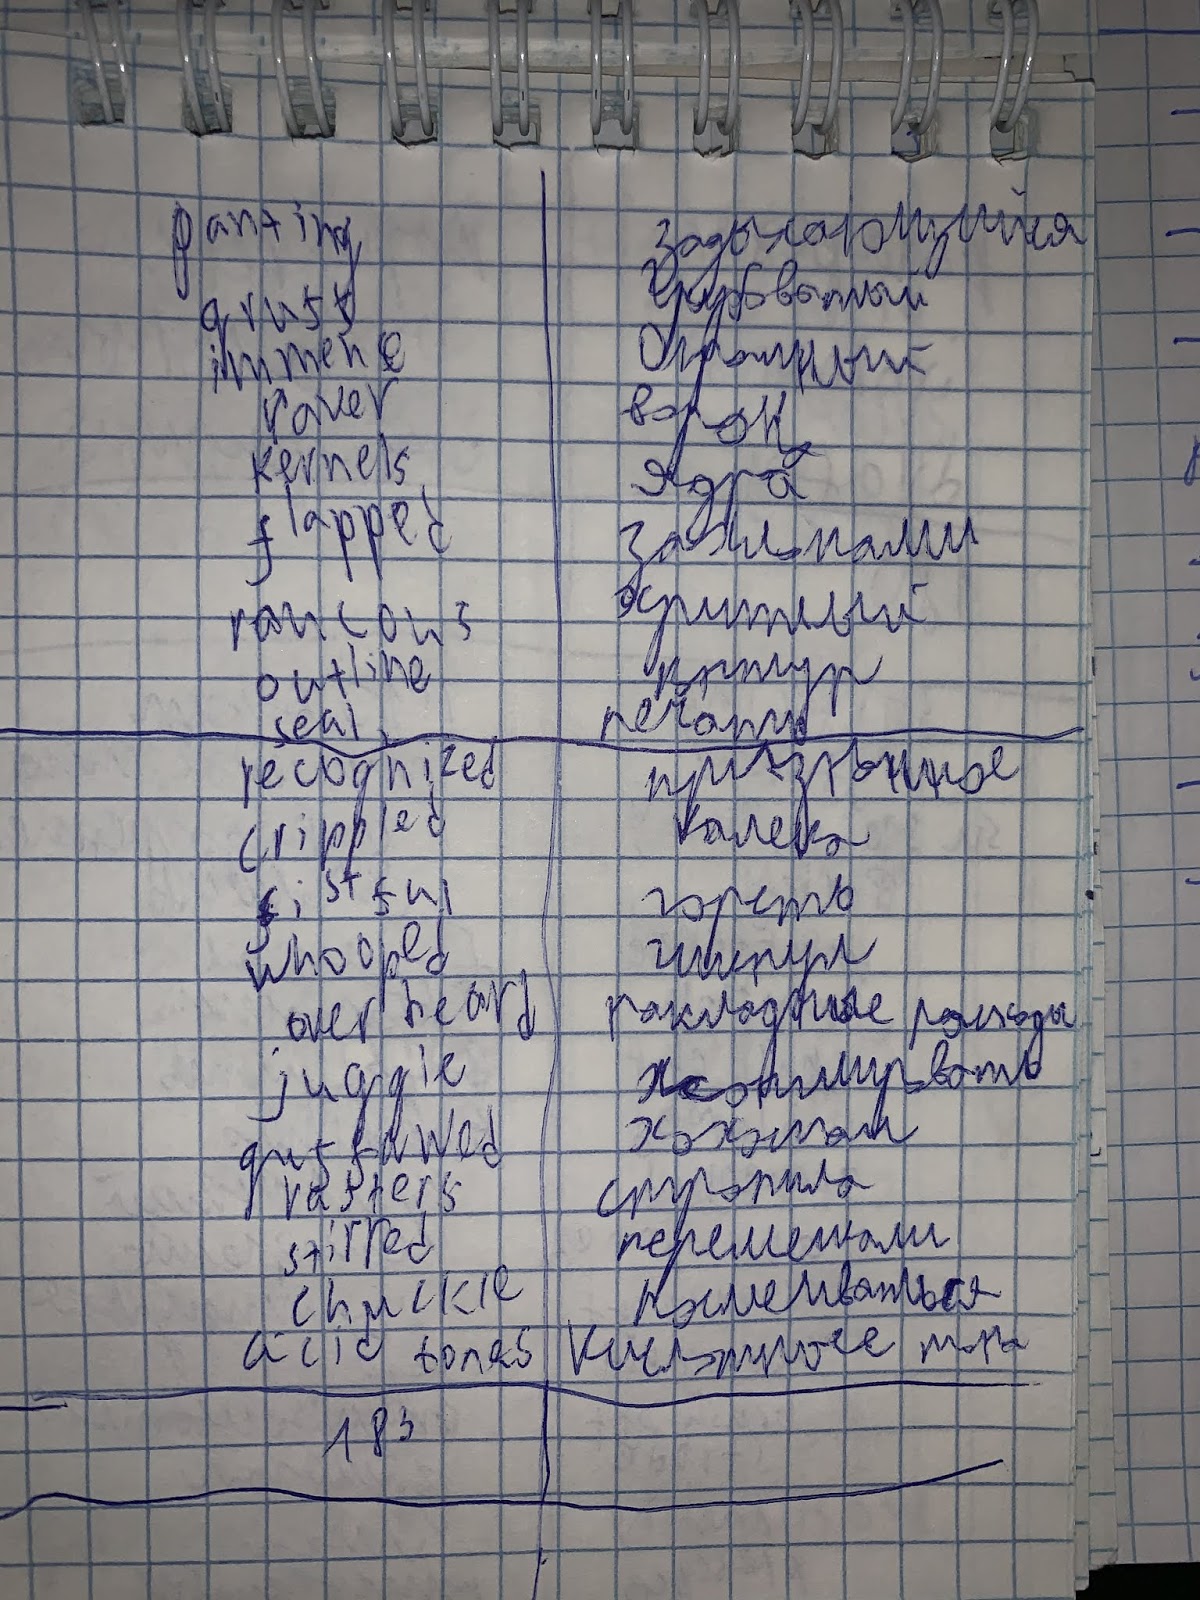 panting задыхающийся
grusty грубоватый
immene Огромный
raver ворон
kernels ядра
flapped захлопали
raucous хриплый
outline контур
seal печать
recognized признанное
crippled калека
fistful горсть
whooped гикнул
over heard накладные расходы
juggle жонглировать
guffawed хохотал
rafters стропила
stirred перемешали
chuckle посмеиваться
acid tones Кислотные тона
183